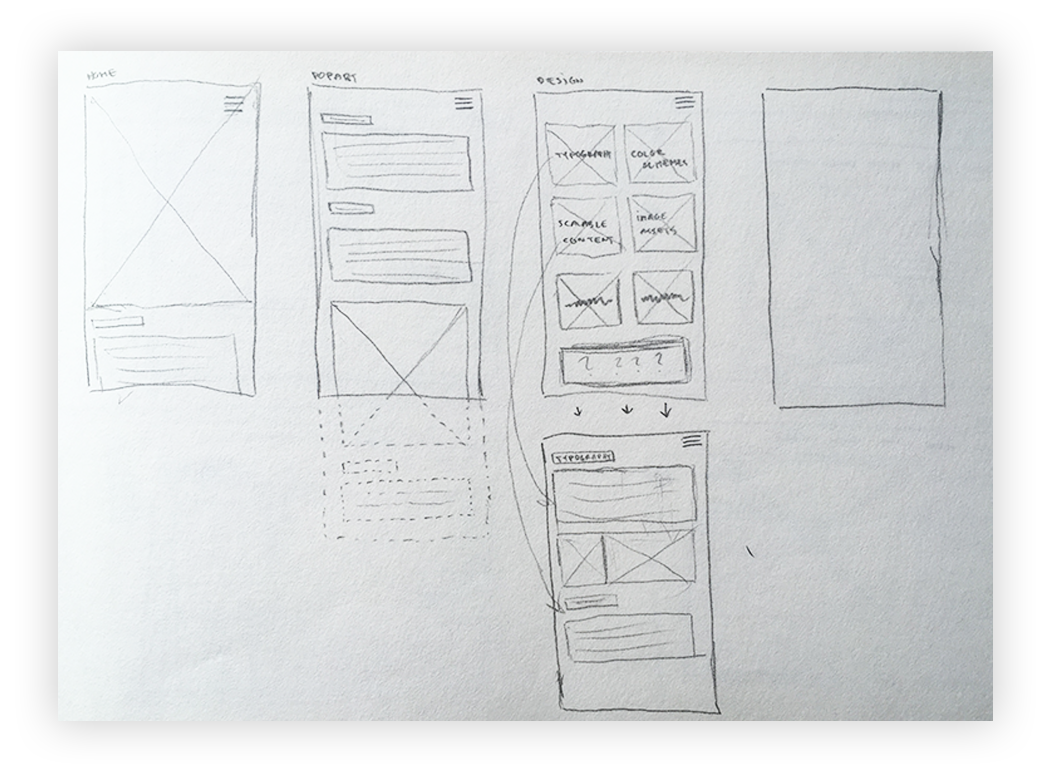 HOME
POPART
DESIGN
TYPOGRAPHY
COLOR
SCHEMES
SCALABLE
CONTENT
IMAGE
ASSETS
? ? ? ?
TYPOGRAPHY